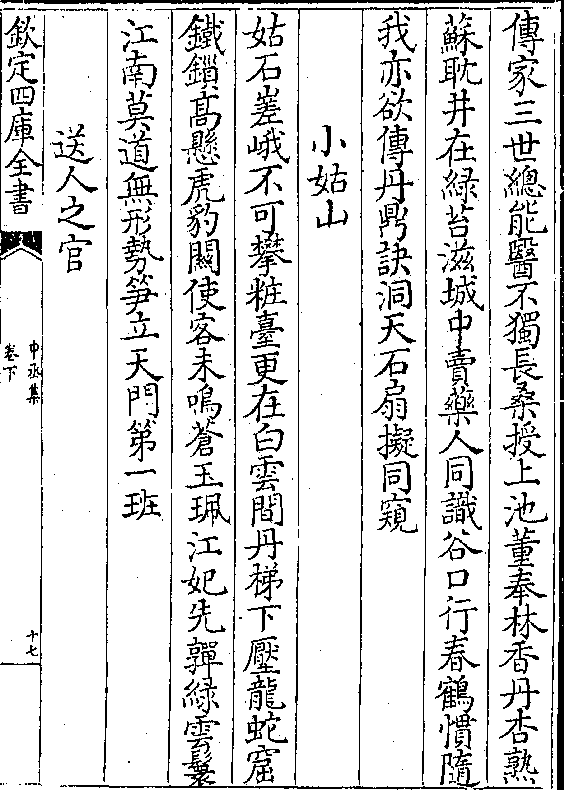 傳家三世總能醫不獨長桑授上池董奉林香丹杏熟
蘇耽井在綠苔滋城中賣藥人同識谷口行春鶴慣隨
我亦欲傳丹鼎訣洞天石扇擬同窺
小姑山
姑石嵳峨不可攀粧臺更在白雲間丹梯下壓龍蛇窟
鐵鎻髙懸虎豹闗使客未鳴蒼玉珮江妃先嚲綠雲鬟
江南莫道無形勢笋立天門第一班
送人之官
欽定四庫全書
中丞集
卷下
十七